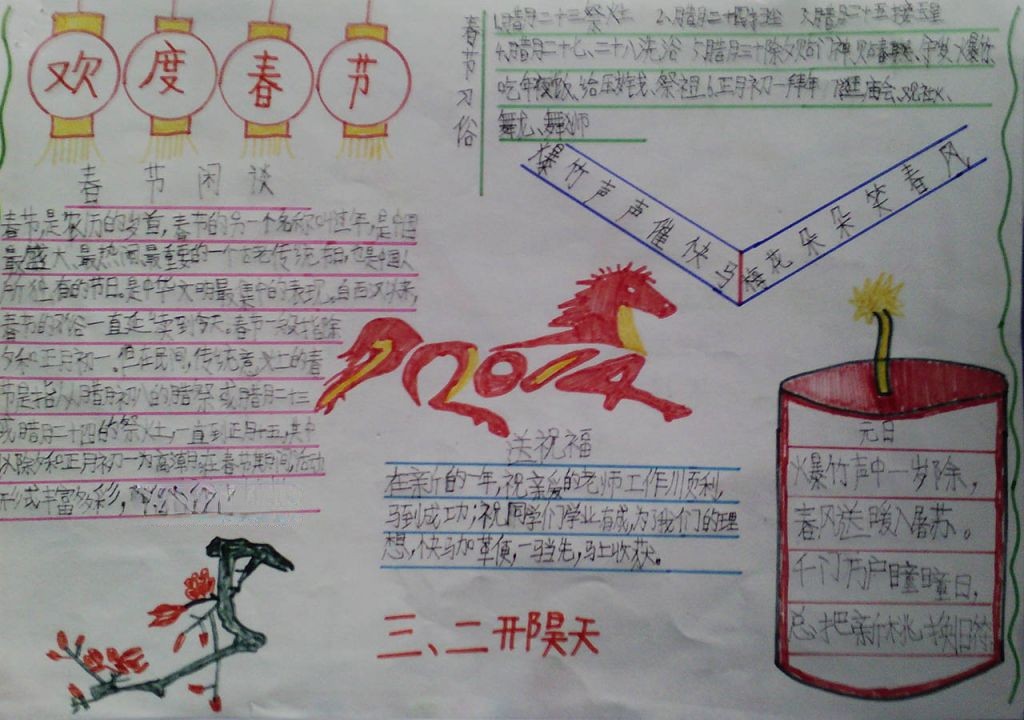 欢度春节
春节习俗
1.腊月二十三祭灶 2.腊月二十四扫尘 3.腊月二十五接玉皇
4.腊月二十七、二十八洗浴 5.腊月三十除夕贴门神、贴春联、守岁、爆竹、
吃年夜饭、给压岁钱、祭祖 6.正月初一拜年 7.逛庙会、
舞龙、舞狮
爆竹声声催快马
梅花朵朵笑春风
春节闲谈
春节,是农历的岁首,春节的另一个名称叫过年,是中国
最盛大、最热闹、最重要的一个古老传统节日,也是中国人
所独有的节日。是中华文明最集中的表现。自西汉以来,
春节的习俗一直延续到今天。春节一般指除
夕和正月初一。但在民间,传统意义上的春
节是指从腊月初八的腊祭或腊月二十三
或腊月二十四的祭灶,一直到正月十五,其中
以除夕和正月初一为高潮。在春节期间,活动
形式丰富多彩,
2014
送祝福
在新的一年,祝亲爱的老师工作顺利,
马到成功;祝同学们学业有成,为了我们的理
想,快马加革便,一马当先,马上收获。
三、二开阳昊天
元日
爆竹声中一岁除,
春风送暖入屠苏。
千门万户曈曈日,
总把新桃换旧符